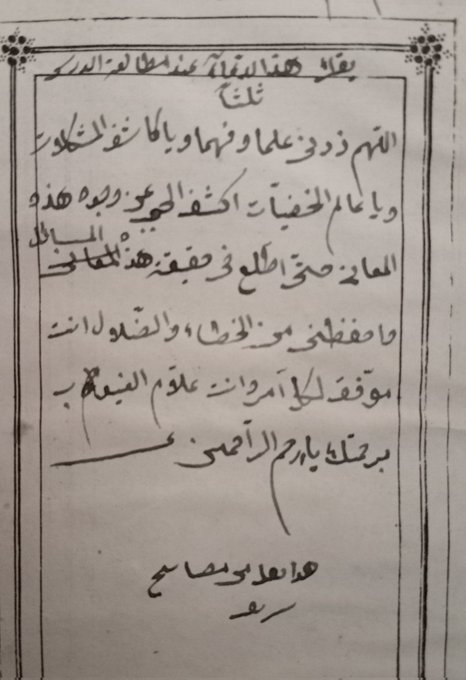 يقراء هذا الدعاء عند مطالعة الدرس
ثلثا
اللهم زدنى علما وفهما ويا كاشف المشكلات
ويا عالم الخفيّات اكشف الحجب عن وجوه هذه
المسائل
المعانى حتّى اطّلع فى حقيقة هذه المعانى
واحفظنى من الخطاء والضّلال انت
موّفق لكل امر وانت علاّم الغيوب
برحمتك يا ارحم الرّاحمين